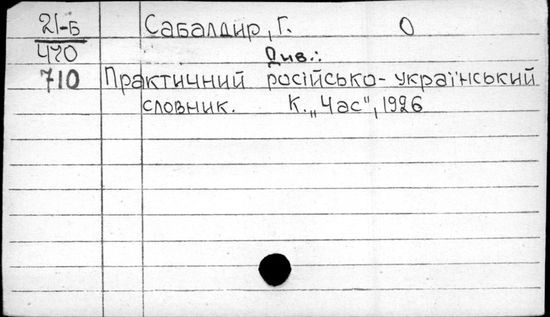 21-Б Сабалдир, Г. О
470 Див.:
710 Практичний російсько-український
словник. К. „Час", 1926